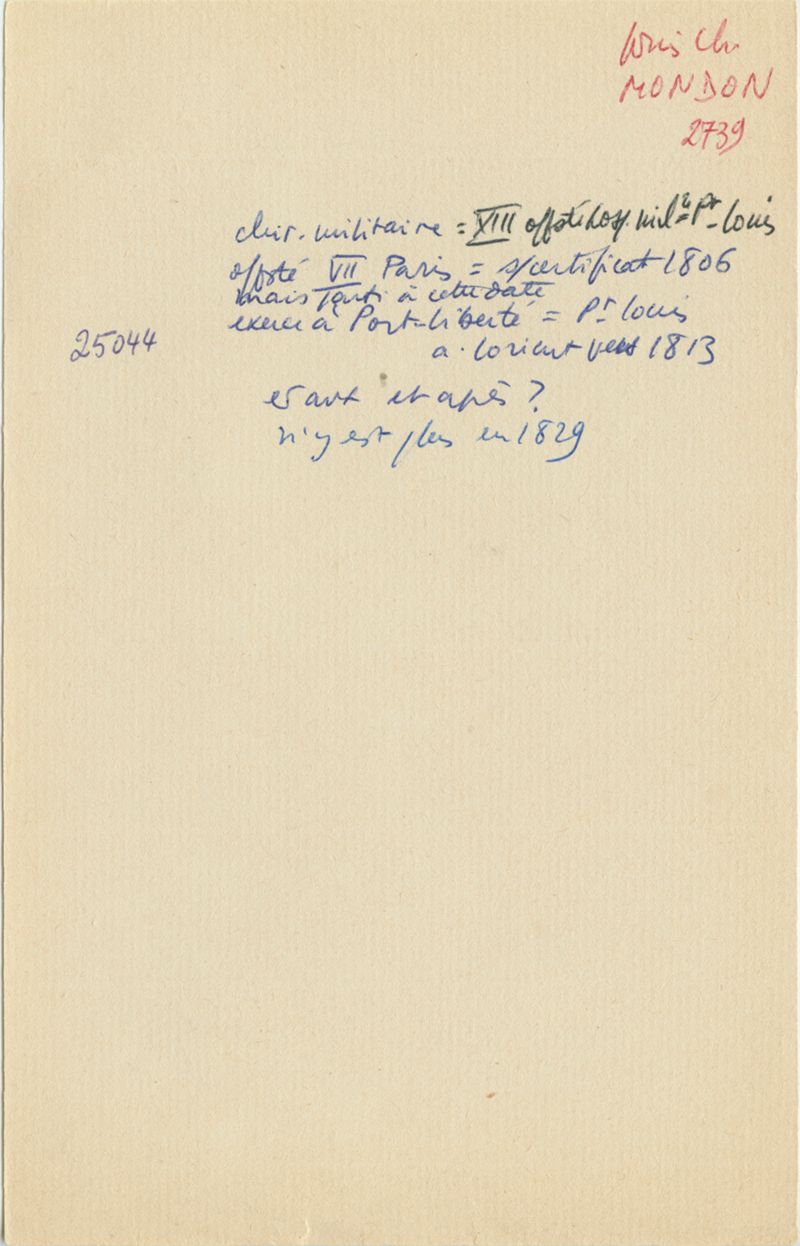 Louis Ch.
MONDON
2739
chir. militaire = XIII affecté hosp. milre Pt-Louis
affecté VII Paris = s/certificat 1806
mais parti à cette date
exerce à Port-Liberté = Pt Louis
25044
à Lorient vers 1813
et avt et après ?
n'y est plus en 1829